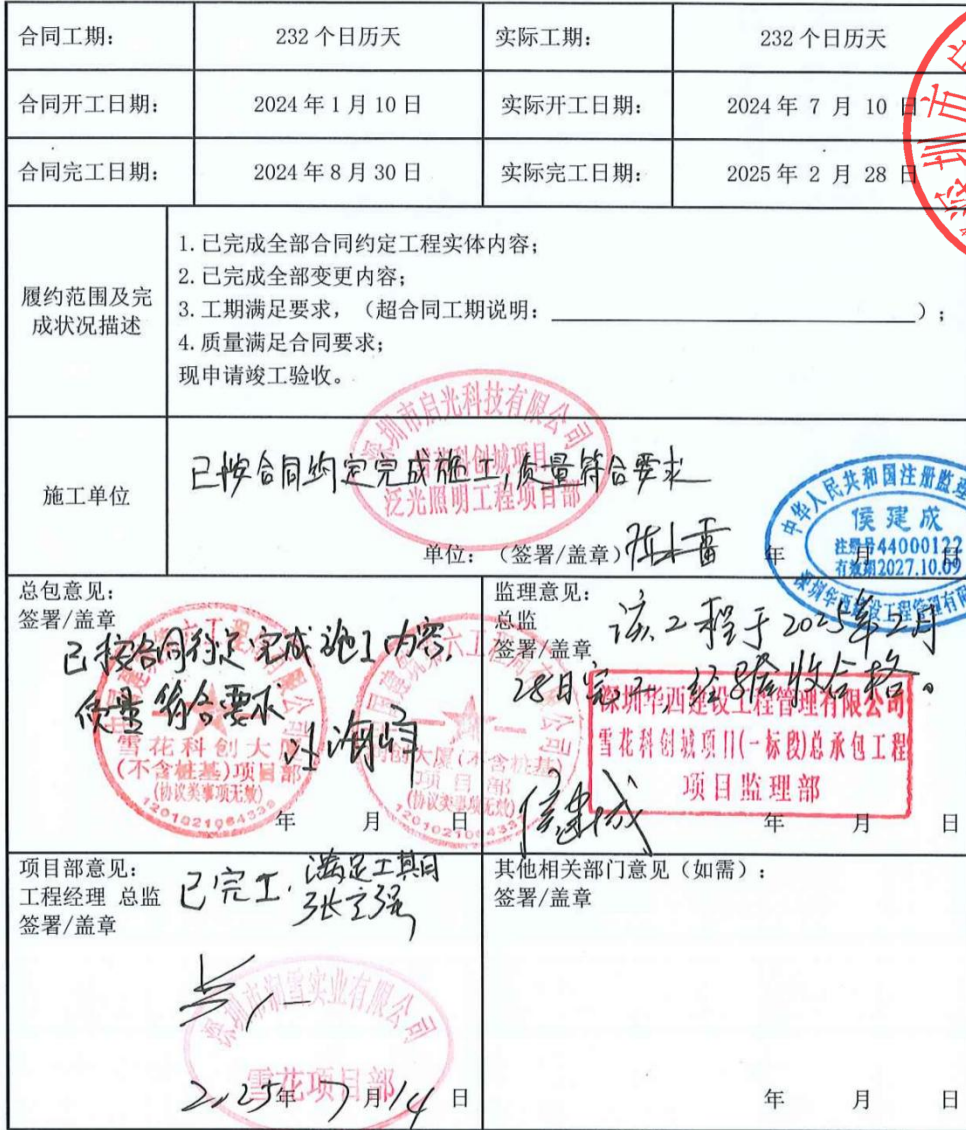 合同工期： 232 个日历天 实际工期： 232 个日历天
合同开工日期： 2024 年 1 月 10 日 实际开工日期： 2024 年 7 月 10 日
合同完工日期： 2024 年 8 月 30 日 实际完工日期： 2025 年 2 月 28 日
履约范围及完
成状况描述
1. 已完成全部合同约定工程实体内容；
2. 已完成全部变更内容；
3. 工期满足要求，（超合同工期说明：）；
4. 质量满足合同要求；
现申请竣工验收。
施工单位
已按合同约定完成施工，质量符合要求
深圳市启光科技有限公司
雪花科创城项目
泛光照明工程项目部
单位：（签署/盖章） 年 月 日
中华人民共和国注册监理
侯建成
注册号44000122
有效期2027.10.09
深圳华西建设工程管理有限
深圳市
总包意见：
签署/盖章
已按合同约定完成施工内容，
质量符合要求
雪花科创大
(不含桩基)项目部
(协议类事项无效)
创大厦(不含桩基)
项目部
(协议类事项无效)
年 月 日
监理意见：
总监
签署/盖章
该工程于2025年2月
28日完工，经验收合格。
深圳华西建设工程管理有限公司
雪花科创城项目(一标段)总承包工程
项目监理部
侯建成
年 月 日
项目部意见：
工程经理 总监
签署/盖章
已完工，满足工期
深圳市润雪实业有限公司
雪花项目部
2025年 7 月 14 日
其他相关部门意见（如需）：
签署/盖章
年 月 日